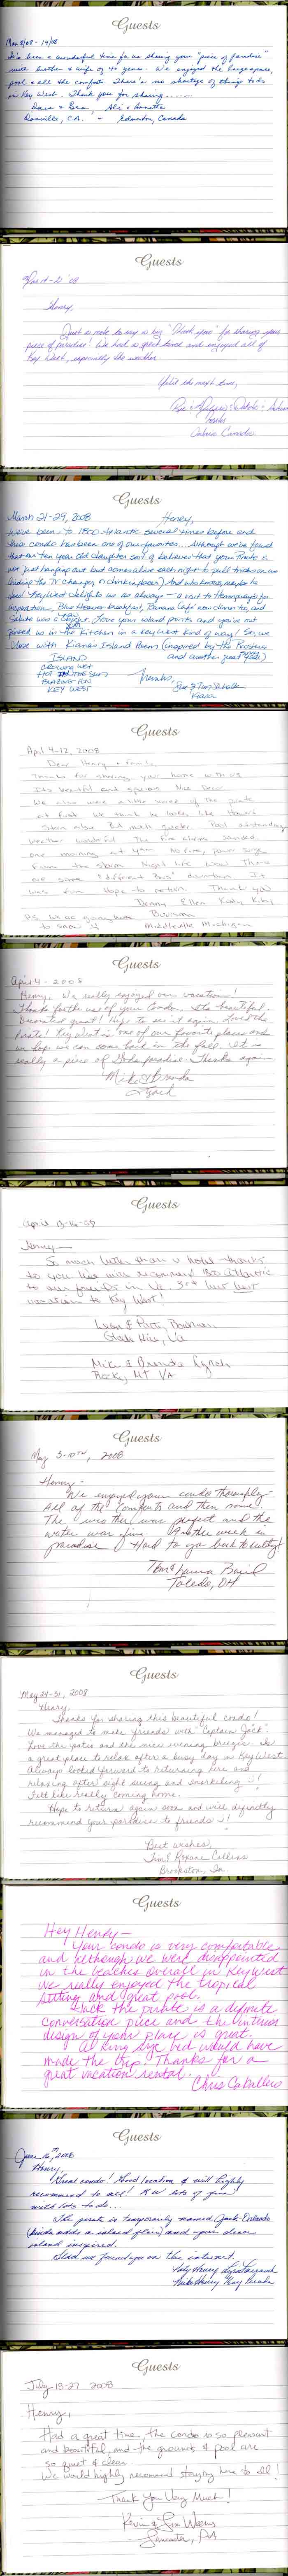 Guests
Mar 8/08 - 14/08
It's been a wonderful time for us sharing your "piece of paradise"
with brother & wife of 40 years. We enjoyed the large space,
pool & all the comforts. There's no shortage of things to do
in Key West. Thank you for sharing ......
Dave & Bea, Ali & Annette
Danville, CA. & Edmonton, Canada
Guests
Mar 14 - 21 '08
Henry,
Just a note to say a big "Thank you" for sharing your
piece of paradise! We had a great time and enjoyed all of
Key West, especially the weather
Until the next time,
Ontario Canada
Guests
March 21-29, 2008 Henry,
We've been to 1800 Atlantic several times before and
this condo has been one of our favorites. Although we've found
that our ten year old daughter sort of believes that your Pirate is
not just hanging out but comes alive each night to pull tricks on us
(hiding the TV changer, drinking beer). And who knows, maybe he
does! Key West delights us as always - a visit to Hemingway's for
inspiration, Blue Heaven breakfast, Banana Cafe now dinner too, and
Salute was a fun. Love your island prints and you've out
pirated us in the kitchen in a key west kind of way! So, we
close with Kiana's Island Poem (inspired by the Roosters
and another great year)
ISLAND
CROWING WET
HOT IN THE SUN
BLAZING FUN
KEY WEST
Thanks,
Guests
April 4-12, 2008
Dear Henry & Family,
Thanks for sharing your home with us
Its beautiful and spacious Nice Decor
We also were a little scare of the pirate
at first we think he looks like Howard
Stern also Ed math teacher. Pool outstanding
weather wonderful The five aliens landed
one morning at 4am
from the storm Night life Wow! There
are some "different Bars" downtown It
was fun Hope to return Thank you
Denny Ellen Kady Kiley
Bowman
Middleville Michigan
PS we are going home
to snow
Guests
April 4 - 2008
Henry, We really enjoyed our vacation!
Thanks for the use of your Condo. It's beautiful.
Decorated great! Hope to see it again. Loved the
Pirate! Key West is one of our favorite places and
we hope we can come back in the fall. It is
really a piece of Gods paradise. Thanks again
Mike & Brenda
Lynch
Guests
April 13-16-08
Henry —
So much better than a hotel - thanks
to you. We will recommend the Atlantic
to our friends in Va. 3rd but best
vacation to Key West!
Leon & Patti Bowman
Glade Hill, Va
Mike & Brenda Lynch
Rocky Mt VA
Guests
May 3-10th, 2008
Henry -
We enjoyed your condo thoroughly
All of the comforts and then some.
The weather was perfect and the
water was fine. Another week in
paradise & Hard to go back to reality!
Tom & Laura Baird
Toledo, OH
Guests
May 24-31, 2008
Henry,
Thanks for sharing this beautiful condo!
We managed to make friends with "Captain Jack".
Love the patio and the nice evening breezes. Its
a great place to relax after a busy day in Key West.
Always looked forward to returning here and
relaxing after sight seeing and snorkeling :)!
Felt like really coming home.
Hope to return again soon and will definitely
recommend your paradise to friends :)!
Best wishes,
Tim & Roxane Collins
Brookston, In.
Guests
Hey Henry —
Your condo is very comfortable
and although we were disappointed
in the beaches overall in Key West
we really enjoyed the tropical
setting and great pool.
Jack the pirate is a definite
conversation piece and the interior
design of your place is great.
A King size bed would have
made the trip. Thanks for a
great vacation rental.
Chris Caballero
Guests
June 16th, 2008
Henry,
Great condo! Good location & will highly
recommend to all! KW lots of fun
with lots to do...
The pirate is temporarily named Jack-Orlando
(kinda adds a island flair) and your decor
island inspired.
Glad we found you on the internet
Guests
July 18-27 2008
Henry,
Had a great time, the condo is so pleasant
and beautiful, and the grounds & pool are
so quiet & clean.
We would highly recommend staying here to all!
Thank You Very Much!
Kevin & Lisa Weems
Lancaster, PA